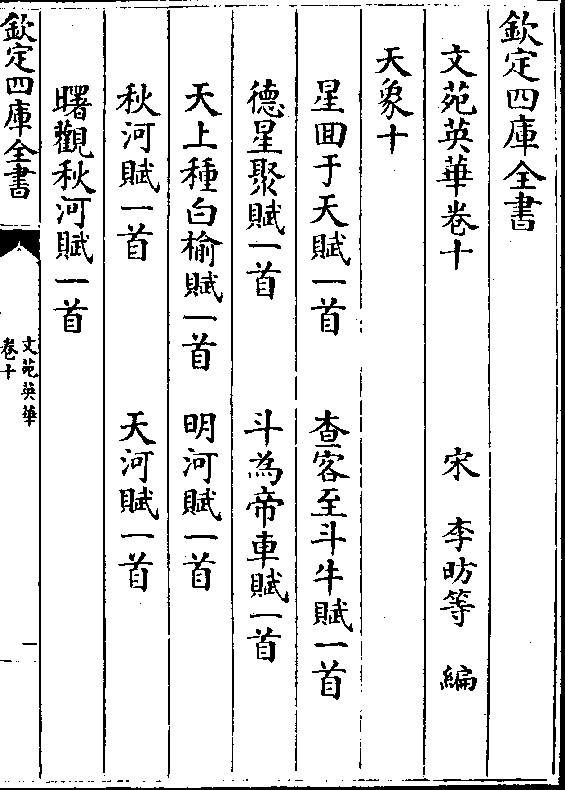 欽定四庫全書
文苑英華卷十
宋 李昉等 編
天象十
星回于天賦一首 查客至斗牛賦一首
德星聚賦一首 斗為帝車賦一首
天上種白榆賦一首 明河賦一首
秋河賦一首 天河賦一首
曙觀秋河賦一首
欽定四庫全書
文苑英華
卷十
一